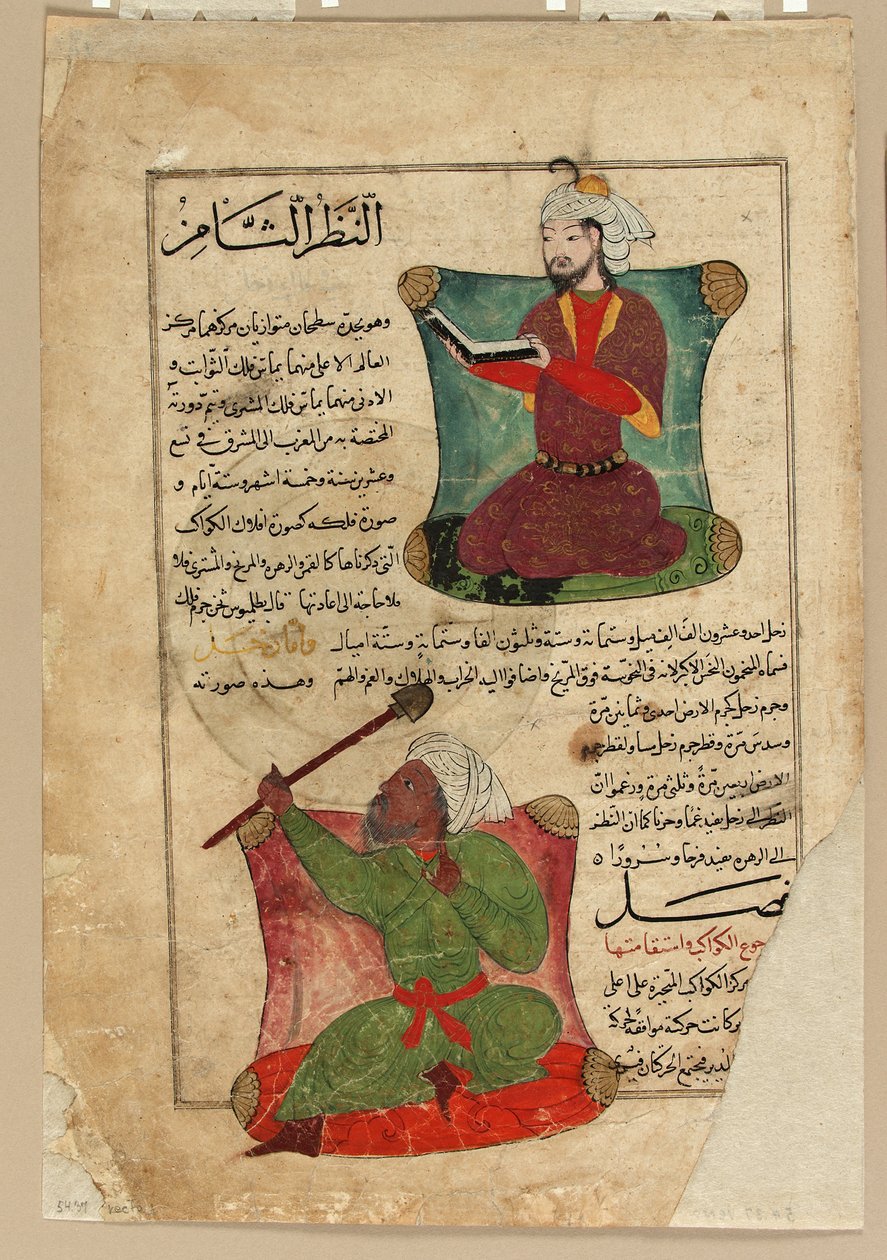 النَّظَرُ الثَّامِنُ
وهو يحدّه سطحان متوازيان مركزهما مركز
العالم الاعلى منهما يماسّ فلك الثوابت و
الادنى منهما يماسّ فلك المشترى وتتمّ دورته
المختصة به من المغرب الى المشرق فى تسع
وعشرين سنة وخمسة اشهر وستة ايّام و
صورة فلكه كصورة افلاك الكواكب
الّتى ذكرناها كالقمر والزهره والمريخ والمشترى فلا
فلا حاجة الى اعادتها قال بطلميوس ثخن جرم فلك
زحل احد وعشرون الف الف ميل وستمائة وستة وثلثون الفا وستمائة وستّة اميال وأمّا زحل
فسماه المنجمون النحس الاكبر لانه فى النحوسة فوق المرّيخ واضافوا اليه الخراب والهلاك والغم والهمّ وهذه صورته
وجرم زحل كجرم الارض احدى وثمانين مرّة
وسدس مرّة وقطر جرم زحل مساو لقطر جرم
الارض اربعين مرّةً وثلثى مرة وزعموا انّ
النّظر الى زحل يفيد غمًا وحزنا كما ان النّظر
الى الزهره يفيد فرحا وسُرورًا ٥
فصل
جوع الكواكب واستقامتها
مركز الكواكب المتحيّرة على اعلى
كانت حركته موافقة لحركة
فيجتمع الحركتان
54.37 recto